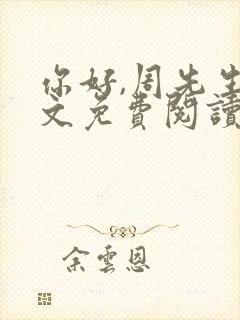 你好,周先生
文免費閱讀
余雲恩